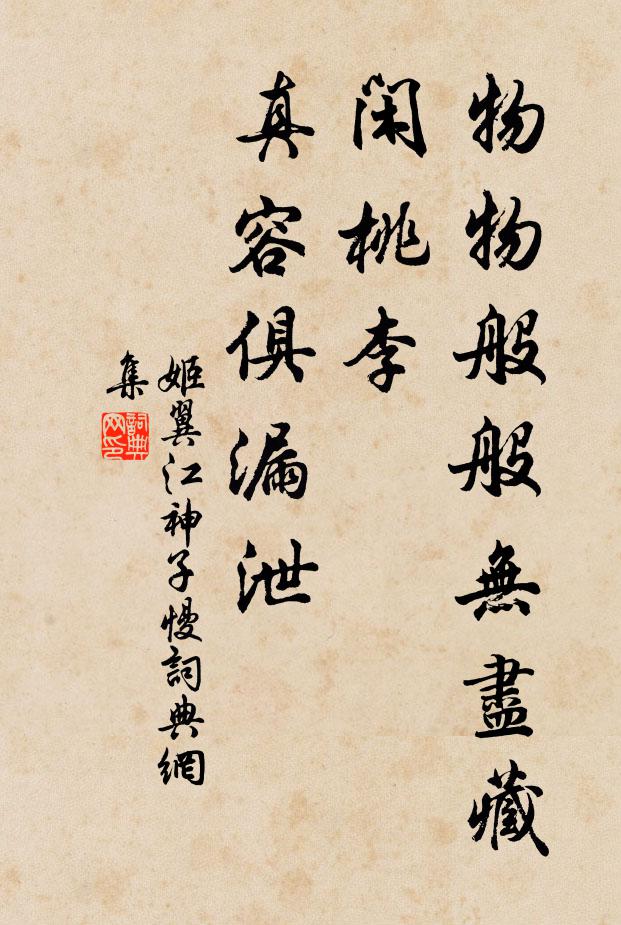 物物般般無盡藏
閑桃李
真容俱漏泄
姬翼江神子慢詞典網
集
詞典網印